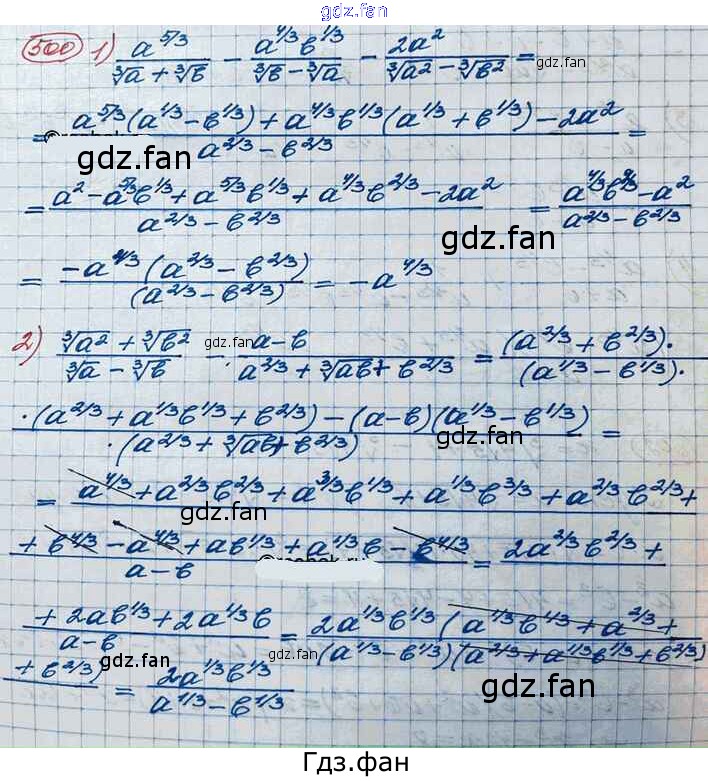 gdz.fan
500 1) a^{5/3}/(∛a + ∛b) − a^{4/3}b^{1/3}/(∛b − ∛a) − 2a²/(∛a² − ∛b²) =
gdz.fan
= (a^{5/3}(a^{1/3} − b^{1/3}) + a^{4/3}b^{1/3}(a^{1/3} + b^{1/3}) − 2a²)/(a^{2/3} − b^{2/3}) =
gdz.fan
= (a² − a^{5/3}b^{1/3} + a^{5/3}b^{1/3} + a^{4/3}b^{2/3} − 2a²)/(a^{2/3} − b^{2/3}) = (a^{4/3}b^{2/3} − a²)/(a^{2/3} − b^{2/3})
gdz.fan
= −a^{4/3}(a^{2/3} − b^{2/3})/(a^{2/3} − b^{2/3}) = −a^{4/3}
2) (∛a² + ∛b²)/(∛a − ∛b) − (a − b)/(a^{2/3} + ∛ab + b^{2/3}) = (a^{2/3} + b^{2/3})·/(a^{1/3} − b^{1/3})·
gdz.fan
·(a^{2/3} + a^{1/3}b^{1/3} + b^{2/3}) − (a − b)(a^{1/3} − b^{1/3})/·(a^{2/3} + ∛ab + b^{2/3}) =
gdz.fan
= a^{4/3} + a^{2/3}b^{2/3} + a^{3/3}b^{1/3} + a^{1/3}b^{3/3} + a^{2/3}b^{2/3} +
gdz.fan
+ b^{4/3} − a^{4/3} + ab^{1/3} + a^{1/3}b − b^{4/3}/(a − b) = 2a^{2/3}b^{2/3} +
+ 2ab^{1/3} + 2a^{1/3}b/(a − b) = 2a^{1/3}b^{1/3}(a^{1/3}b^{1/3} + a^{2/3} +/(a^{1/3} − b^{1/3})(a^{2/3} + a^{1/3}b^{1/3} + b^{2/3})
gdz.fan
+ b^{2/3}) = 2a^{1/3}b^{1/3}/(a^{1/3} − b^{1/3})
gdz.fan
Гдз.фан